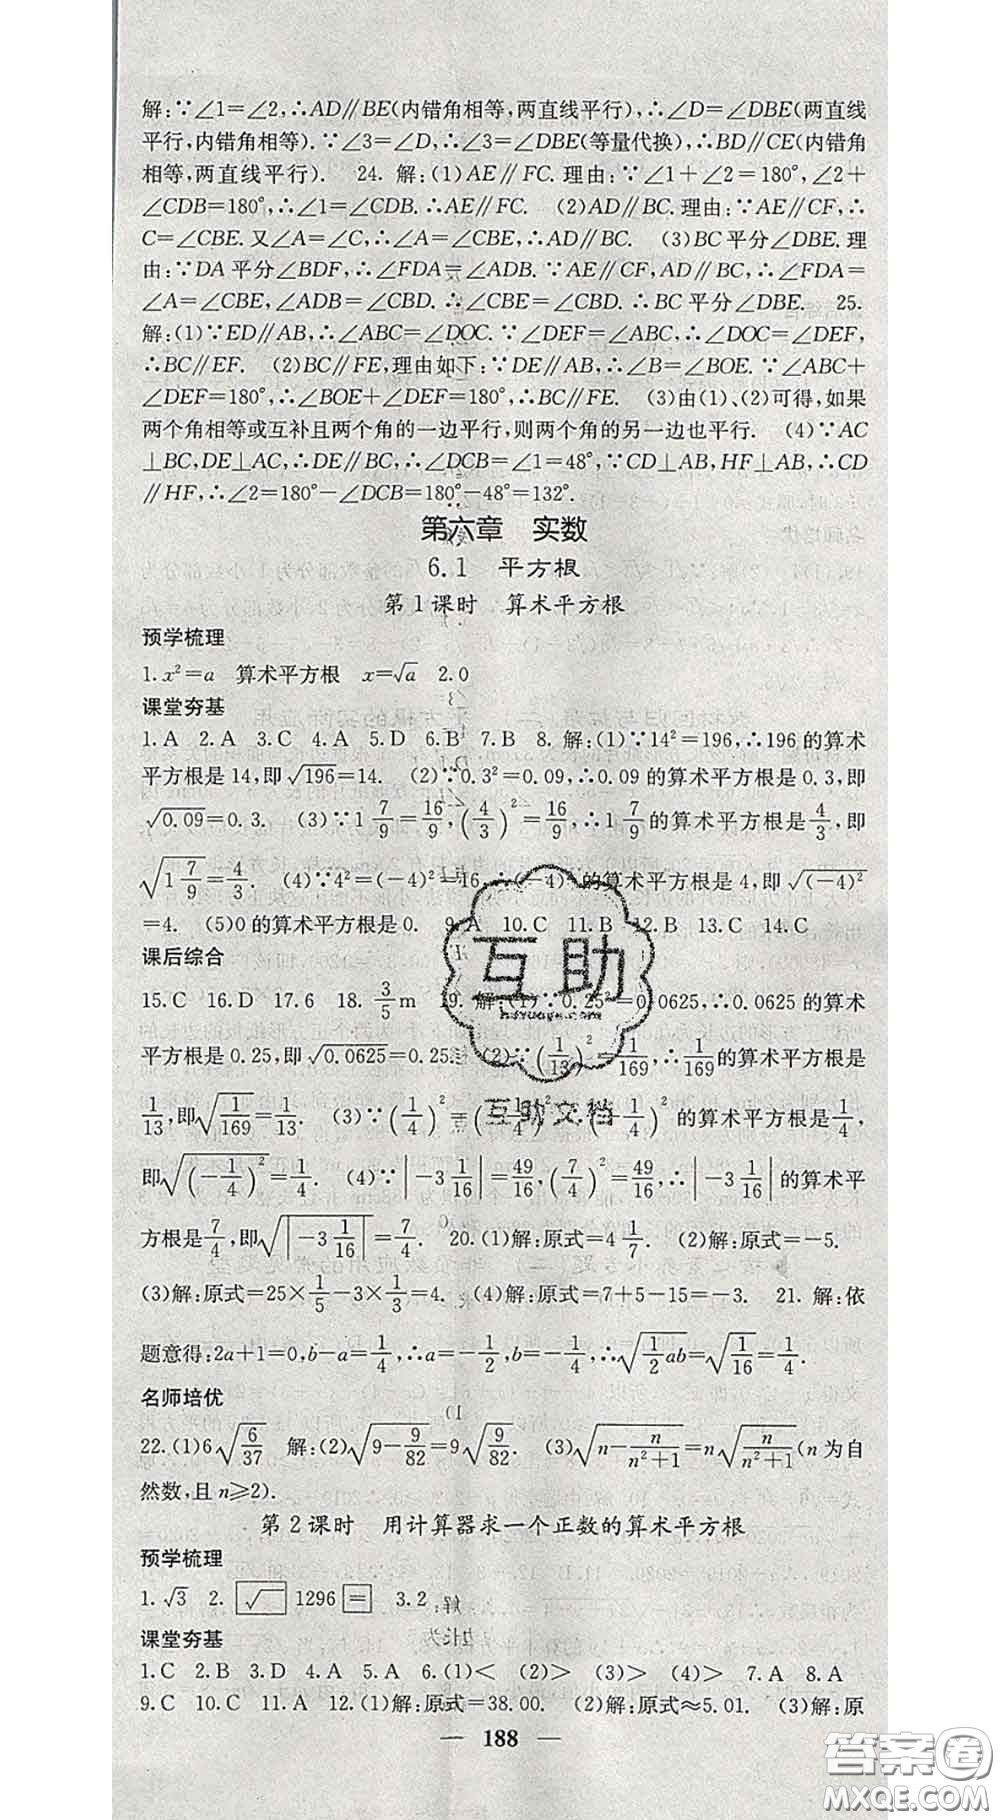 解:∵∠1=∠2,∴AD∥BE(内错角相等,两直线平行),∴∠D=∠DBE(两直线
平行,内错角相等).∵∠3=∠D,∴∠3=∠DBE(等量代换),∴BD∥CE(内错角
相等,两直线平行). 24. 解:(1)AE∥FC. 理由:∵∠1+∠2=180°,∠2+
∠CDB=180°,∴∠1=∠CDB.∴AE∥FC. (2)AD∥BC. 理由:∵AE∥CF,∴
C=∠CBE. 又∠A=∠C,∴∠A=∠CBE,∴AD∥BC. (3)BC平分∠DBE. 理
由:∵DA平分∠BDF,∴∠FDA=∠ADB. ∵AE∥CF,AD∥BC,∴∠FDA=
∠A=∠CBE,∠ADB=∠CBD. ∴∠CBE=∠CBD. ∴BC平分∠DBE. 25.
解:(1)∵ED∥AB,∴∠ABC=∠DOC. ∵∠DEF=∠ABC,∴∠DOC=∠DEF,
∴BC∥EF. (2)BC∥FE,理由如下:∵DE∥AB,∴∠B=∠BOE. ∵∠ABC+
∠DEF=180°,∴∠BOE+∠DEF=180°,∴BC∥FE. (3)由(1)、(2)可得,如果
两个角相等或互补且两个角的一边平行,则两个角的另一边也平行. (4)∵AC
⊥BC,DE⊥AC,∴DE∥BC,∴∠DCB=∠1=48°,∵CD⊥AB,HF⊥AB,∴CD
∥HF,∴∠2=180°-∠DCB=180°-48°=132°.
第六章 实数
6.1 平方根
第1课时 算术平方根
预学梳理
1.x²=a 算术平方根 x=√a 2.0
课堂夯基
1.A 2.A 3.C 4.A 5.D 6.B 7.B 8. 解:(1)∵14²=196,∴196的算术
平方根是14,即√196=14. (2)∵0.3²=0.09,∴0.09的算术平方根是0.3,即
√0.09=0.3. (3)∵1 7/9=16/9,(4/3)²=16/9,∴1 7/9的算术平方根是4/3,即
√(1 7/9)=4/3. (4)∵4²=(-4)²=16,∴(-4)²的算术平方根是4,即√((-4)²)
=4. (5)0的算术平方根是0. 9.A 10.C 11.B 12.B 13.C 14.C
课后综合
15.C 16.D 17.6 18. 3/5 m 19. 解:(1)∵0.25²=0.0625,∴0.0625的算术
平方根是0.25,即√0.0625=0.25. (2)∵(1/13)²=1/169,∴1/169的算术平方根是
1/13,即√(1/169)=1/13. (3)∵(1/4)²=(-1/4)²,∴(-1/4)²的算术平方根是1/4,
即√((-1/4)²)=1/4. (4)∵|-3 1/16|=49/16,(7/4)²=49/16,∴|-3 1/16|的算术平
方根是7/4,即√|-3 1/16|=7/4. 20.(1)解:原式=4 1/7. (2)解:原式=-5.
(3)解:原式=25×1/5-3×1/3=4. (4)解:原式=7+5-15=-3. 21. 解:依
题意得:2a+1=0,b-a=1/4,∴a=-1/2,b=-1/4,∴√(1/2 ab)=√(1/16)=1/4.
名师培优
22.(1)6√(6/37) 解:(2)√(9-9/82)=9√(9/82). (3)√(n-n/(n²+1))=n√(n/(n²+1))(n为自
然数,且n≥2).
第2课时 用计算器求一个正数的算术平方根
预学梳理
1.√3 2.√ 1296 = 3.2
课堂夯基
1.C 2.B 3.D 4.A 5.A 6.(1)< (2)> (3)> (4)> 7.A 8.A
9.C 10.C 11.A 12.(1)解:原式=38.00. (2)解:原式≈5.01. (3)解:原
— 188 —
互助
互助文档
答案圈
MXQE.COM